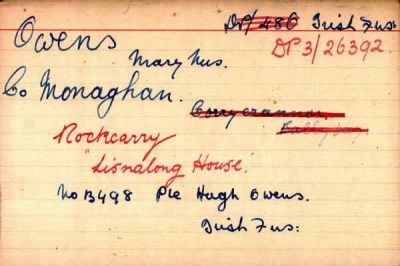 Owens DP/486 Irish Fus:
DP3/26392
Mary Mrs.
Co Monaghan.
Corrycrannor.
Ballybay
Rockcarry
"Lisnalong House."
No B498 Pte Hugh Owens.
Irish Fus: